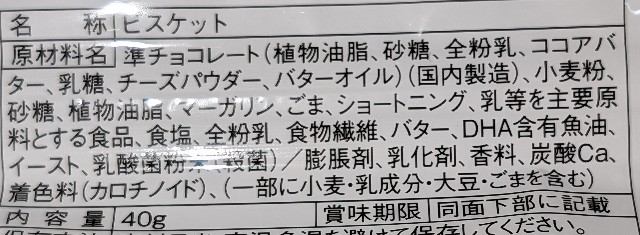 名 称 ビスケット
原材料名 準チョコレート(植物油脂、砂糖、全粉乳、ココアバ
ター、乳糖、チーズパウダー、バターオイル)(国内製造)、小麦粉、
砂糖、植物油脂、マーガリン、ごま、ショートニング、乳等を主要原
料とする食品、食塩、全粉乳、食物繊維、バター、DHA含有魚油、
イースト、乳酸菌粉末(殺菌)/膨脹剤、乳化剤、香料、炭酸Ca、
着色料(カロチノイド)、(一部に小麦・乳成分・大豆・ごまを含む)
内 容 量 40g 賞味期限 同面下部に記載
を避けて保存してください。